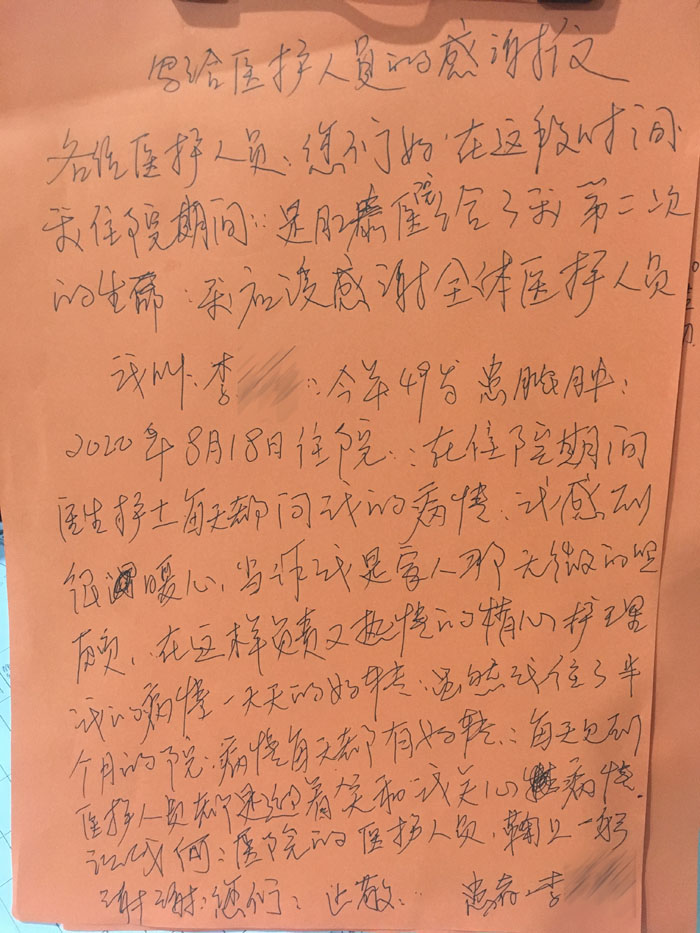 写给医护人员的感谢文
各位医护人员：您们好，在这段时间
我住院期间：是肛泰医院给了我第二次
的生命：我应该感谢全体医护人员
我叫：李：今年49岁 患脓肿：
2020年8月18日住院：在住院期间
医生护士每天都问我的病情：我感到
很暖心，当作我是家人那无微的照
顾，在这样负责又热情的精心护理
我的病情一天天的好转：虽然我住了半
个月的院：病情每天都有好转：每天见到
医护人员都是迎着笑和我关心病情.
让我向：医院的医护人员，鞠上一躬
谢谢：您们：此敬： 患者：李